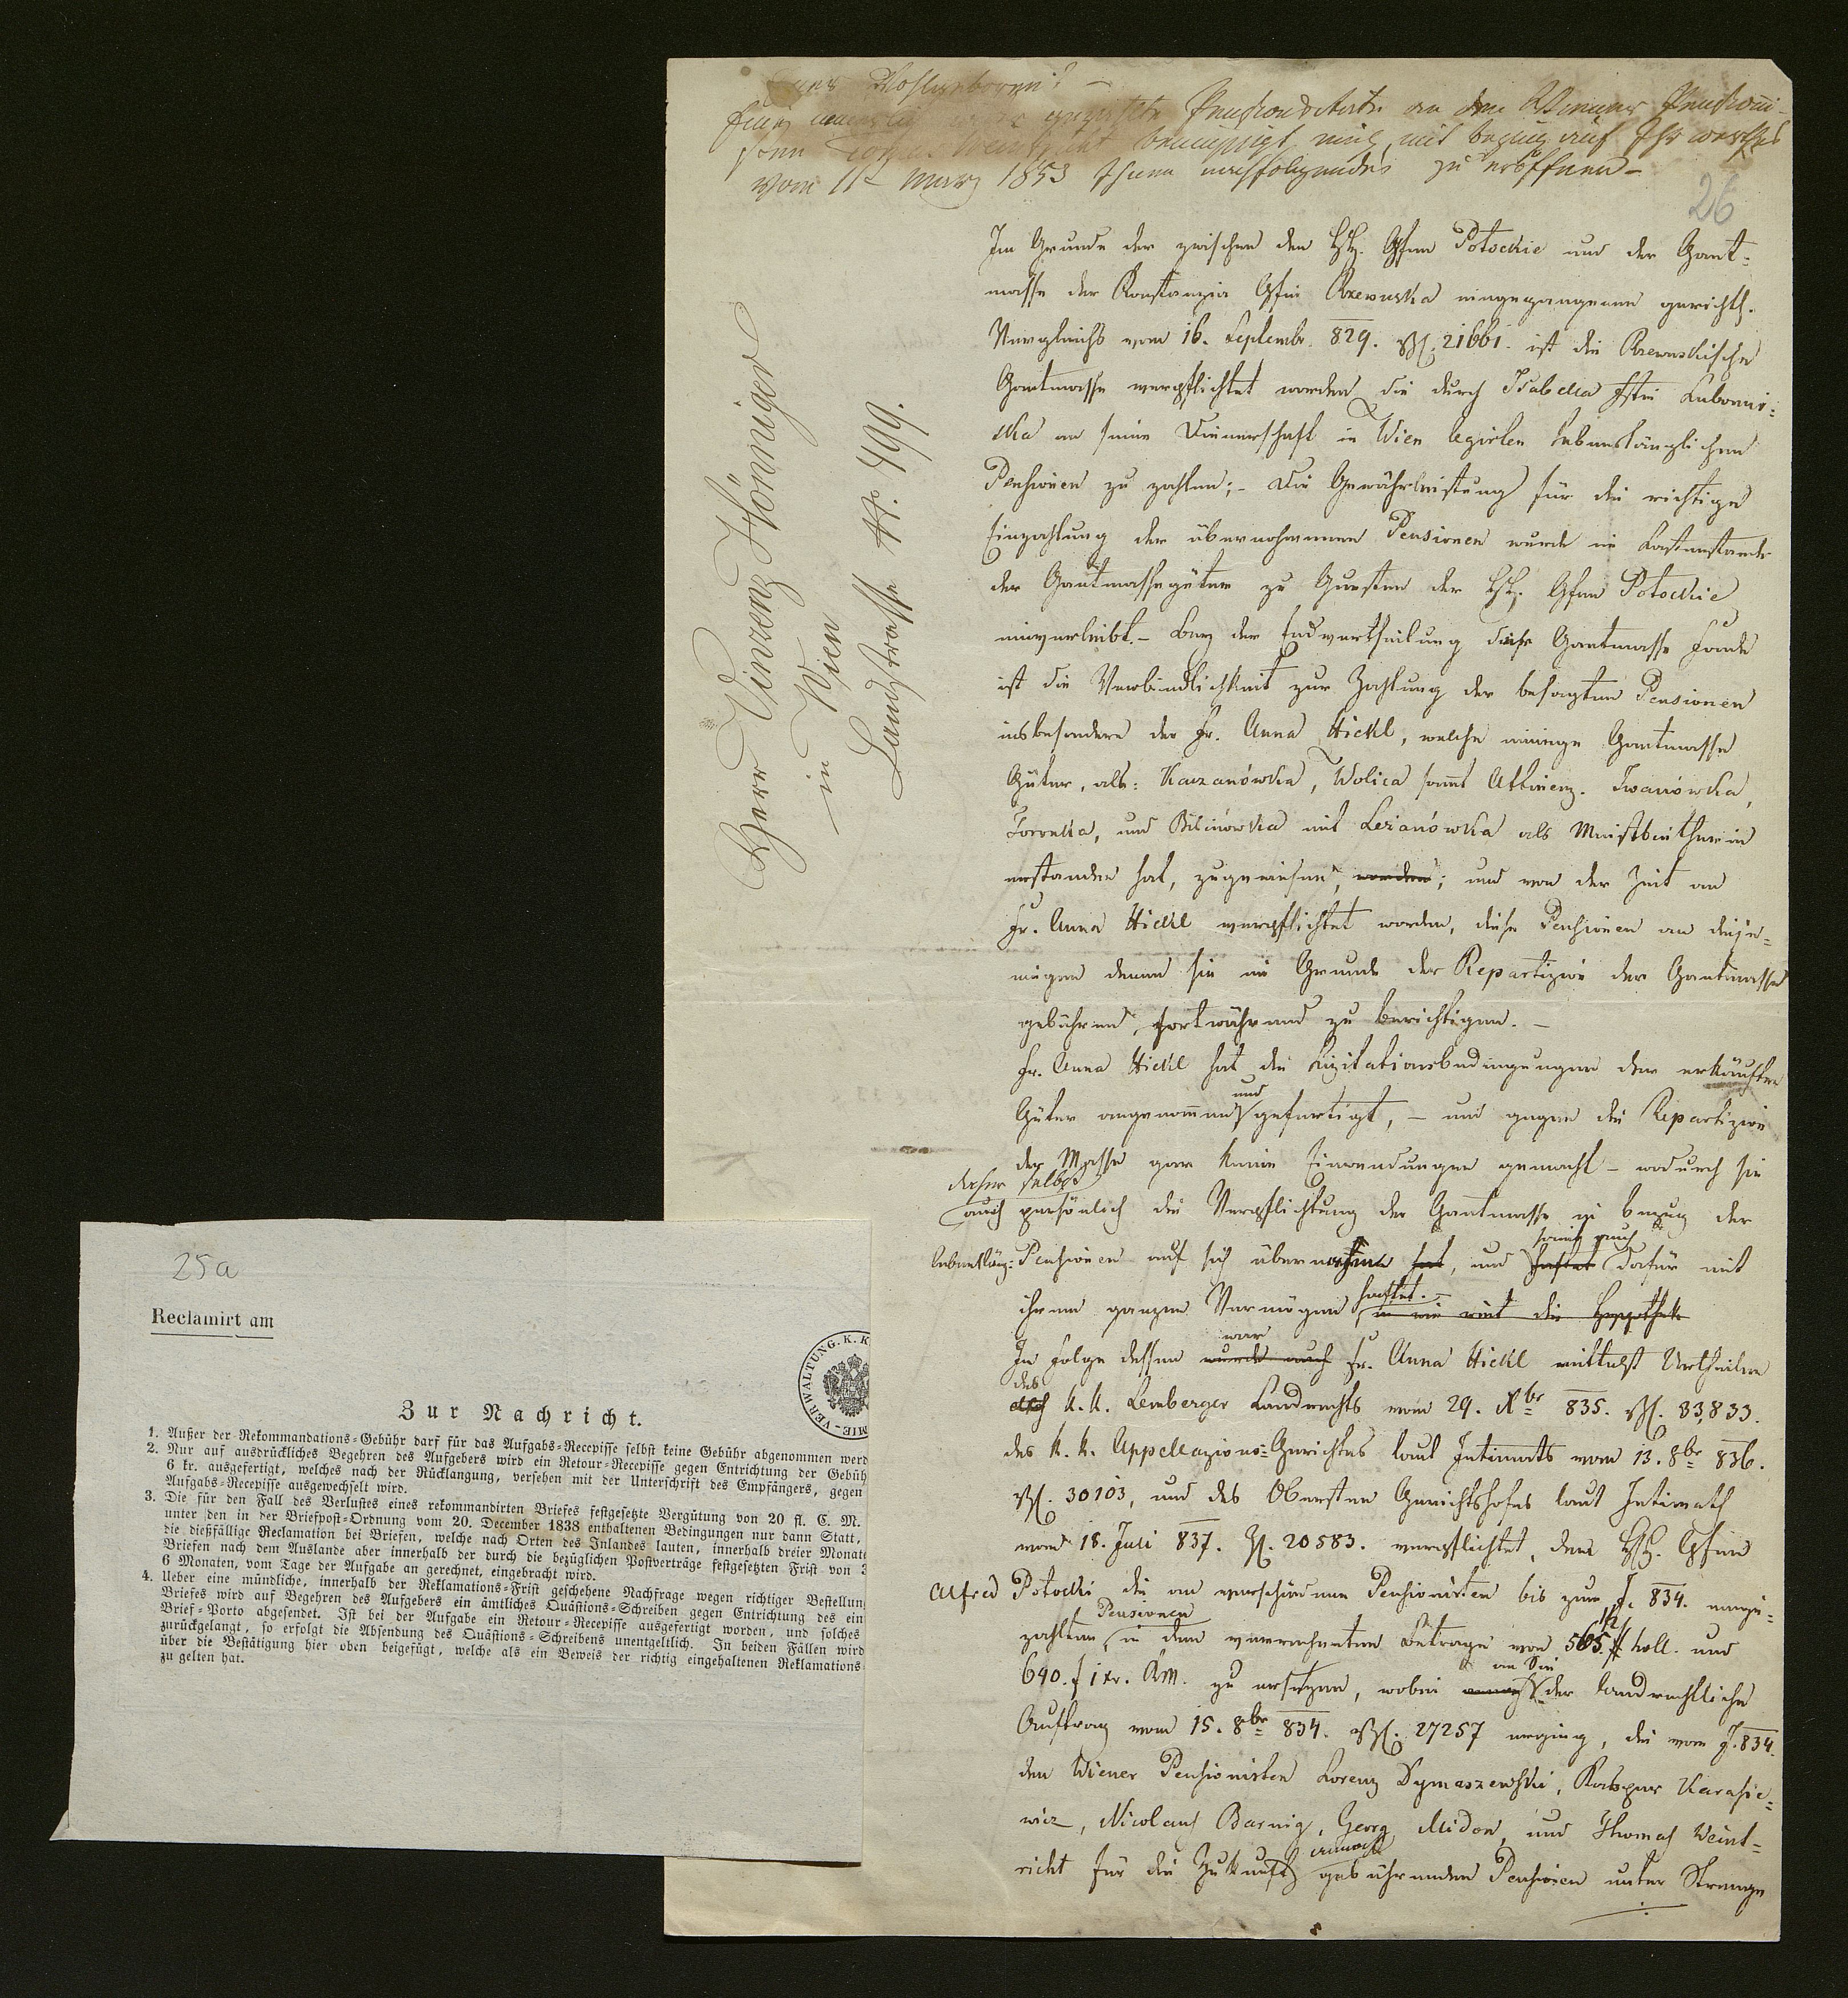 Euer Wohlgeboren!
vom 11t März 1853 Ihnen nachfolgendes zu eröffnen –
26
Im Grunde der zwischen den HH. Gfen Potockie und der Gant-
masse der Konstanzia Gfin Rzewuska eingegangenen gerichtl.
Vergleichs vom 16. Septembr. 829. 21661. ist die Rzewuskische
Gantmasse verpflichtet worden die durch Isabella Fstin Lubomir-
ska an seine Dienerschaft in Wien legirten lebenslänglichen
Pensionen zu zahlen; – Die Gewährleistung für die richtige
Einzahlung der übernommenen Pensionen wurde im Lastenstande
der Gantmassegüter zu Gunsten der HH. Gfen Potockie
einverleibt. – Bey der Endvertheilung dieser Gantmasse Fonde
ist die Verbindlichkeit zur Zahlung der besagten Pensionen
insbesondere der Fr. Anna Hickl, welche einige Gantmasse
Güter, als: Kaczanówka, Wolica samt Attinenz. Iwanówka,
und mit Lezanówka als Meistbietherin
erstanden hat, zugewiesen, worden; und von der Zeit an
Fr. Anna Hickl verpflichtet worden, diese Pensionen an dieje-
nigen denen sie im Grunde der Repartizion der Gantmasse
gebühren, fortwährend zu berichtigen. –
Fr. Anna Hickl hat die Lizitationsbedingungen der erkäuften
und
Güter angenommen gefertigt, – und gegen die Repartizion
der Masse gar keine Einwendungen gemacht – wodurch sie
daher selbe
auch persönlich die Verpflichtung der Gantmasse in bezug der
lebenslängl: Pensionen auf sich hat, und haftet dafür mit
somit auch
ihrem ganzen Vermögen haftet. – die Hypothek
war
In Folge dessen wurde auch Fr. Anna Hickl mittelst Urtheilen
des
K. K. Lemberger Landrechts vom 29. Xbr 835. 33,833.
des K. K. Appellazions-Gerichtes laut Intimats vom 13. 8br 836.
30103, und des Obersten Gerichtshofes laut Intimats
vom 18. Juli 837. Z. 20583. verpflichtet, dem HH. Gfen
Alfred Potocki die an verschiedene Pensionisten bis zum J. 834. einge-
Pensionen
zahlten in dem Betrage von holl. und
640. f 1 xr. KM. zu ersetzen, wobei der landrechtliche
an Sie
Auftrag vom 15. 8br 834. 27257 erging, die vom J. 834.
den Wiener Pensionisten Lorenz Dymaszewski, Kasper Karasie-
wicz, Nicolaus Barnig, Georg Midon, und Thomas Weint-
richt für die Zukunft gebührenden Pensionen unter Strenge
Herr Vinzenz Hönniger
in Wien
Landstrasse N. 499.
25a
Reclamirt am
Zur Nachricht.
1. Außer der Rekommandations-Gebühr darf für das Aufgabs-Recepisse selbst keine Gebühr abgenommen werd
2. Nur auf ausdrückliches Begehren des Aufgebers wird ein Retour-Recepisse gegen Entrichtung der Gebüh
6 kr. ausgefertigt, welches nach der Rücklangung, versehen mit der Unterschrift des Empfängers, gegen
Aufgabs-Recepisse ausgewechselt wird.
3. Die für den Fall des Verlustes eines rekommandirten Briefes festgesetzte Vergütung von 20 fl. C. M.
unter den in der Briefpost-Ordnung vom 20. December 1838 enthaltenen Bedingungen nur dann Statt,
die dießfällige Reclamation bei Briefen, welche nach Orten des Inlandes lauten, innerhalb dreier Monate
Briefen nach dem Auslande aber innerhalb der durch die bezüglichen Postverträge festgesetzten Frist von
6 Monaten, vom Tage der Aufgabe an gerechnet, eingebracht wird.
4. Ueber eine mündliche, innerhalb der Reklamations-Frist geschehene Nachfrage wegen richtiger Bestellun
Briefes wird auf Begehren des Aufgebers ein ämtliches Quästions-Schreiben gegen Entrichtung des ein
Brief-Porto abgesendet. Ist bei der Aufgabe ein Retour-Recepisse ausgefertigt worden, und solches
zurückgelangt, so erfolgt die Absendung des Quästions-Schreibens unentgeltlich. In beiden Fällen wird
über die Bestätigung hier oben beigefügt, welche als ein Beweis der richtig eingehaltenen Reklamations
zu gelten hat.